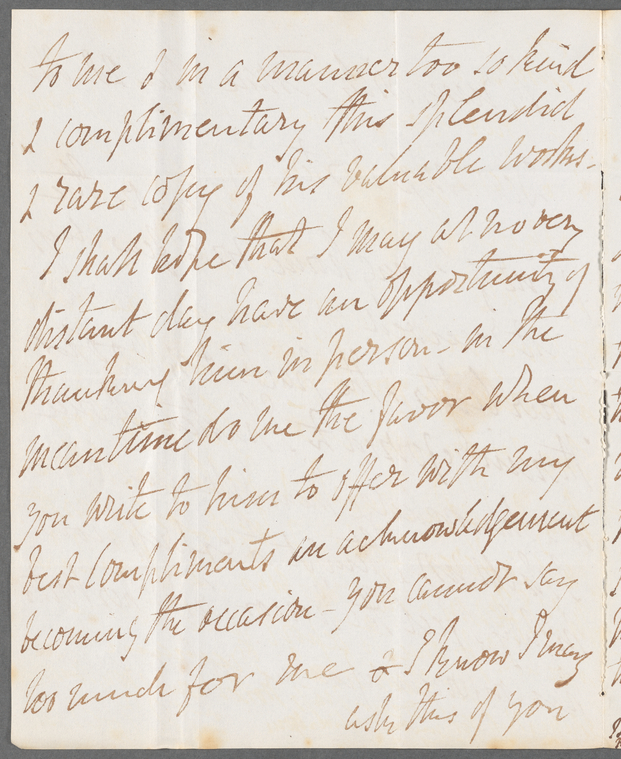 to me & in a manner too so kind
& complimentary this splendid
& rare copy of his valuable works-
I shall hope that I may at no very
distant day have an opportunity of
thanking him in person - in the
meantime do me the favor when
you write to him to offer with my
best compliments an acknowledgement
becoming the occasion - you cannot say
too much for me & I know I may
ask this of you